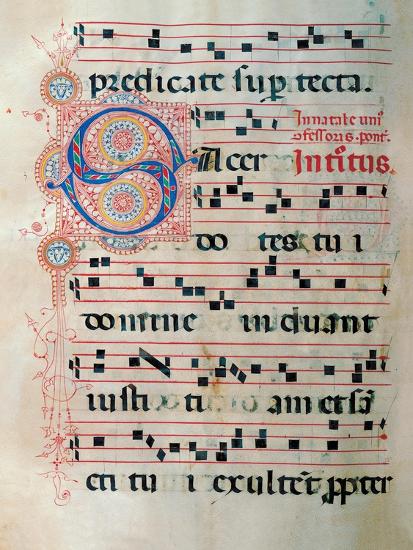 predicate sup tecta.
In natale uni'
ɔfessoris. pont'.
SAcer Int'itus.
do tes tu i
domine induant
iusti ti am et sā
cti tu i exultēt ppter